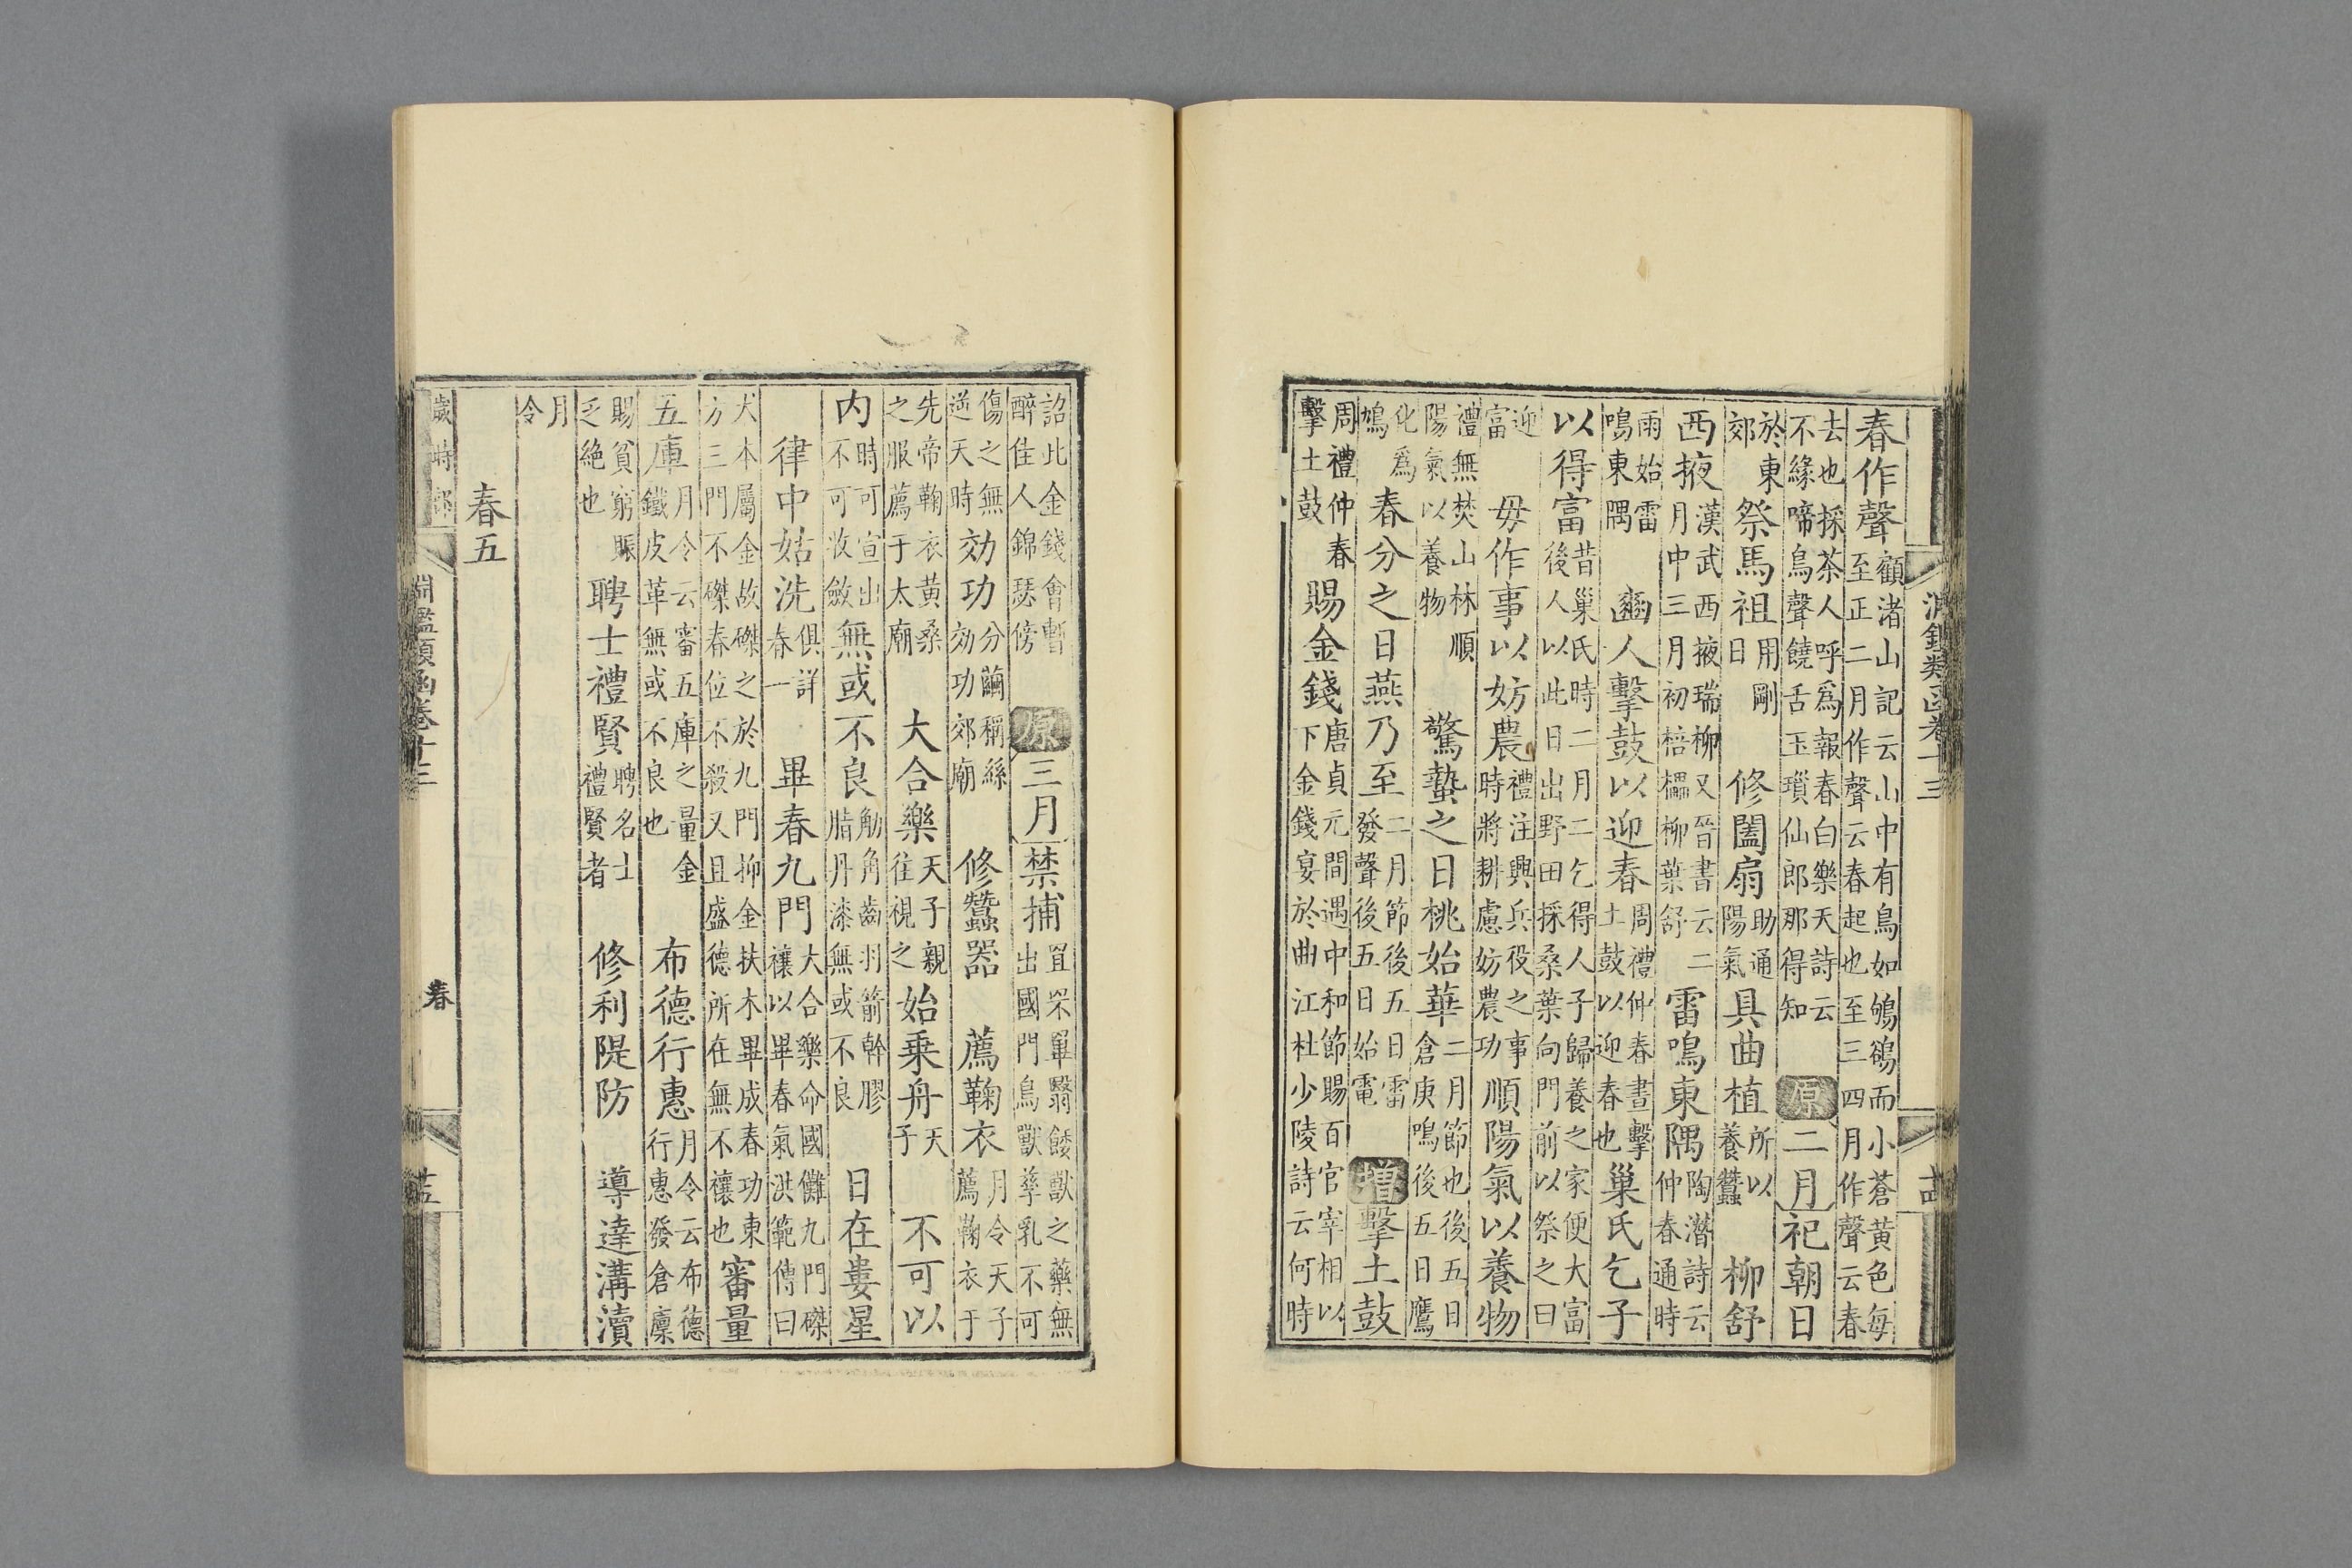 淵鑑類函卷十三 十四
春作聲顧渚山記云山中有鳥如鴝鵒而小蒼黃色每至正二月作聲云春起也至三四月作聲云春
去也採茶人呼爲報春白樂天詩云不緣啼鳥聲饒舌玉瑣仙郎那得知 原 二月 祀朝日
於東郊 祭馬祖用剛日 修闔扇助通陽氣 具曲植所以養蠶 柳舒
西掖漢武西掖瑞柳又晉書云二月中三月初棓櫑柳葉舒 雷鳴東隅陶潛詩云仲春通時
雨始雷鳴東隅 豳人擊鼓以迎春周禮仲春晝擊土鼓以迎春也 巢氏乞子
以得富昔巢氏時二月二乞得人子歸養之家便大富後人以此日出野田採桑葉向門前以祭之曰
迎富 毋作事以妨農禮注興兵役之事時將耕慮妨農功 順陽氣以養物
禮無焚山林順陽氣以養物 驚蟄之日桃始華二月節也後五日倉庚鳴後五日鷹
化爲鳩 春分之日燕乃至二月節後五日雷發聲後五日始電 增 擊土鼓
周禮仲春擊土鼓 賜金錢唐貞元間遇中和節賜百官宰相以下金錢宴於曲江杜少陵詩云何時
詔此金錢會暫醉佳人錦瑟傍 原 三月 禁捕罝罘畢翳餧獸之藥無出國門鳥獸孳乳不可
傷之無逆天時 効功分繭稱絲効功郊廟 修蠶器 薦鞠衣月令天子薦鞠衣于
先帝鞠衣黃桑之服薦于太廟 大合樂天子親往視之 始乗舟天子 不可以
內時可宣出不可收斂 無或不良觔角齒羽箭幹膠脂丹漆無或不良 日在婁星
律中姑洗俱詳春一 畢春九門大合樂命國儺九門磔禳以畢春氣洪範傳曰
犬本屬金故磔之於九門抑金扶木畢成春功東方三門不磔春位不殺又且盛德所在無不禳也 審量
五庫月令云審五庫之量金鐵皮革無或不良也 布德行惠月令云布德行惠發倉廩
賜貧窮賑乏絕也 聘士禮賢聘名士禮賢者 修利隄防 導達溝瀆
月令
春五
歲時部 淵鑑類函卷十三 春 十五